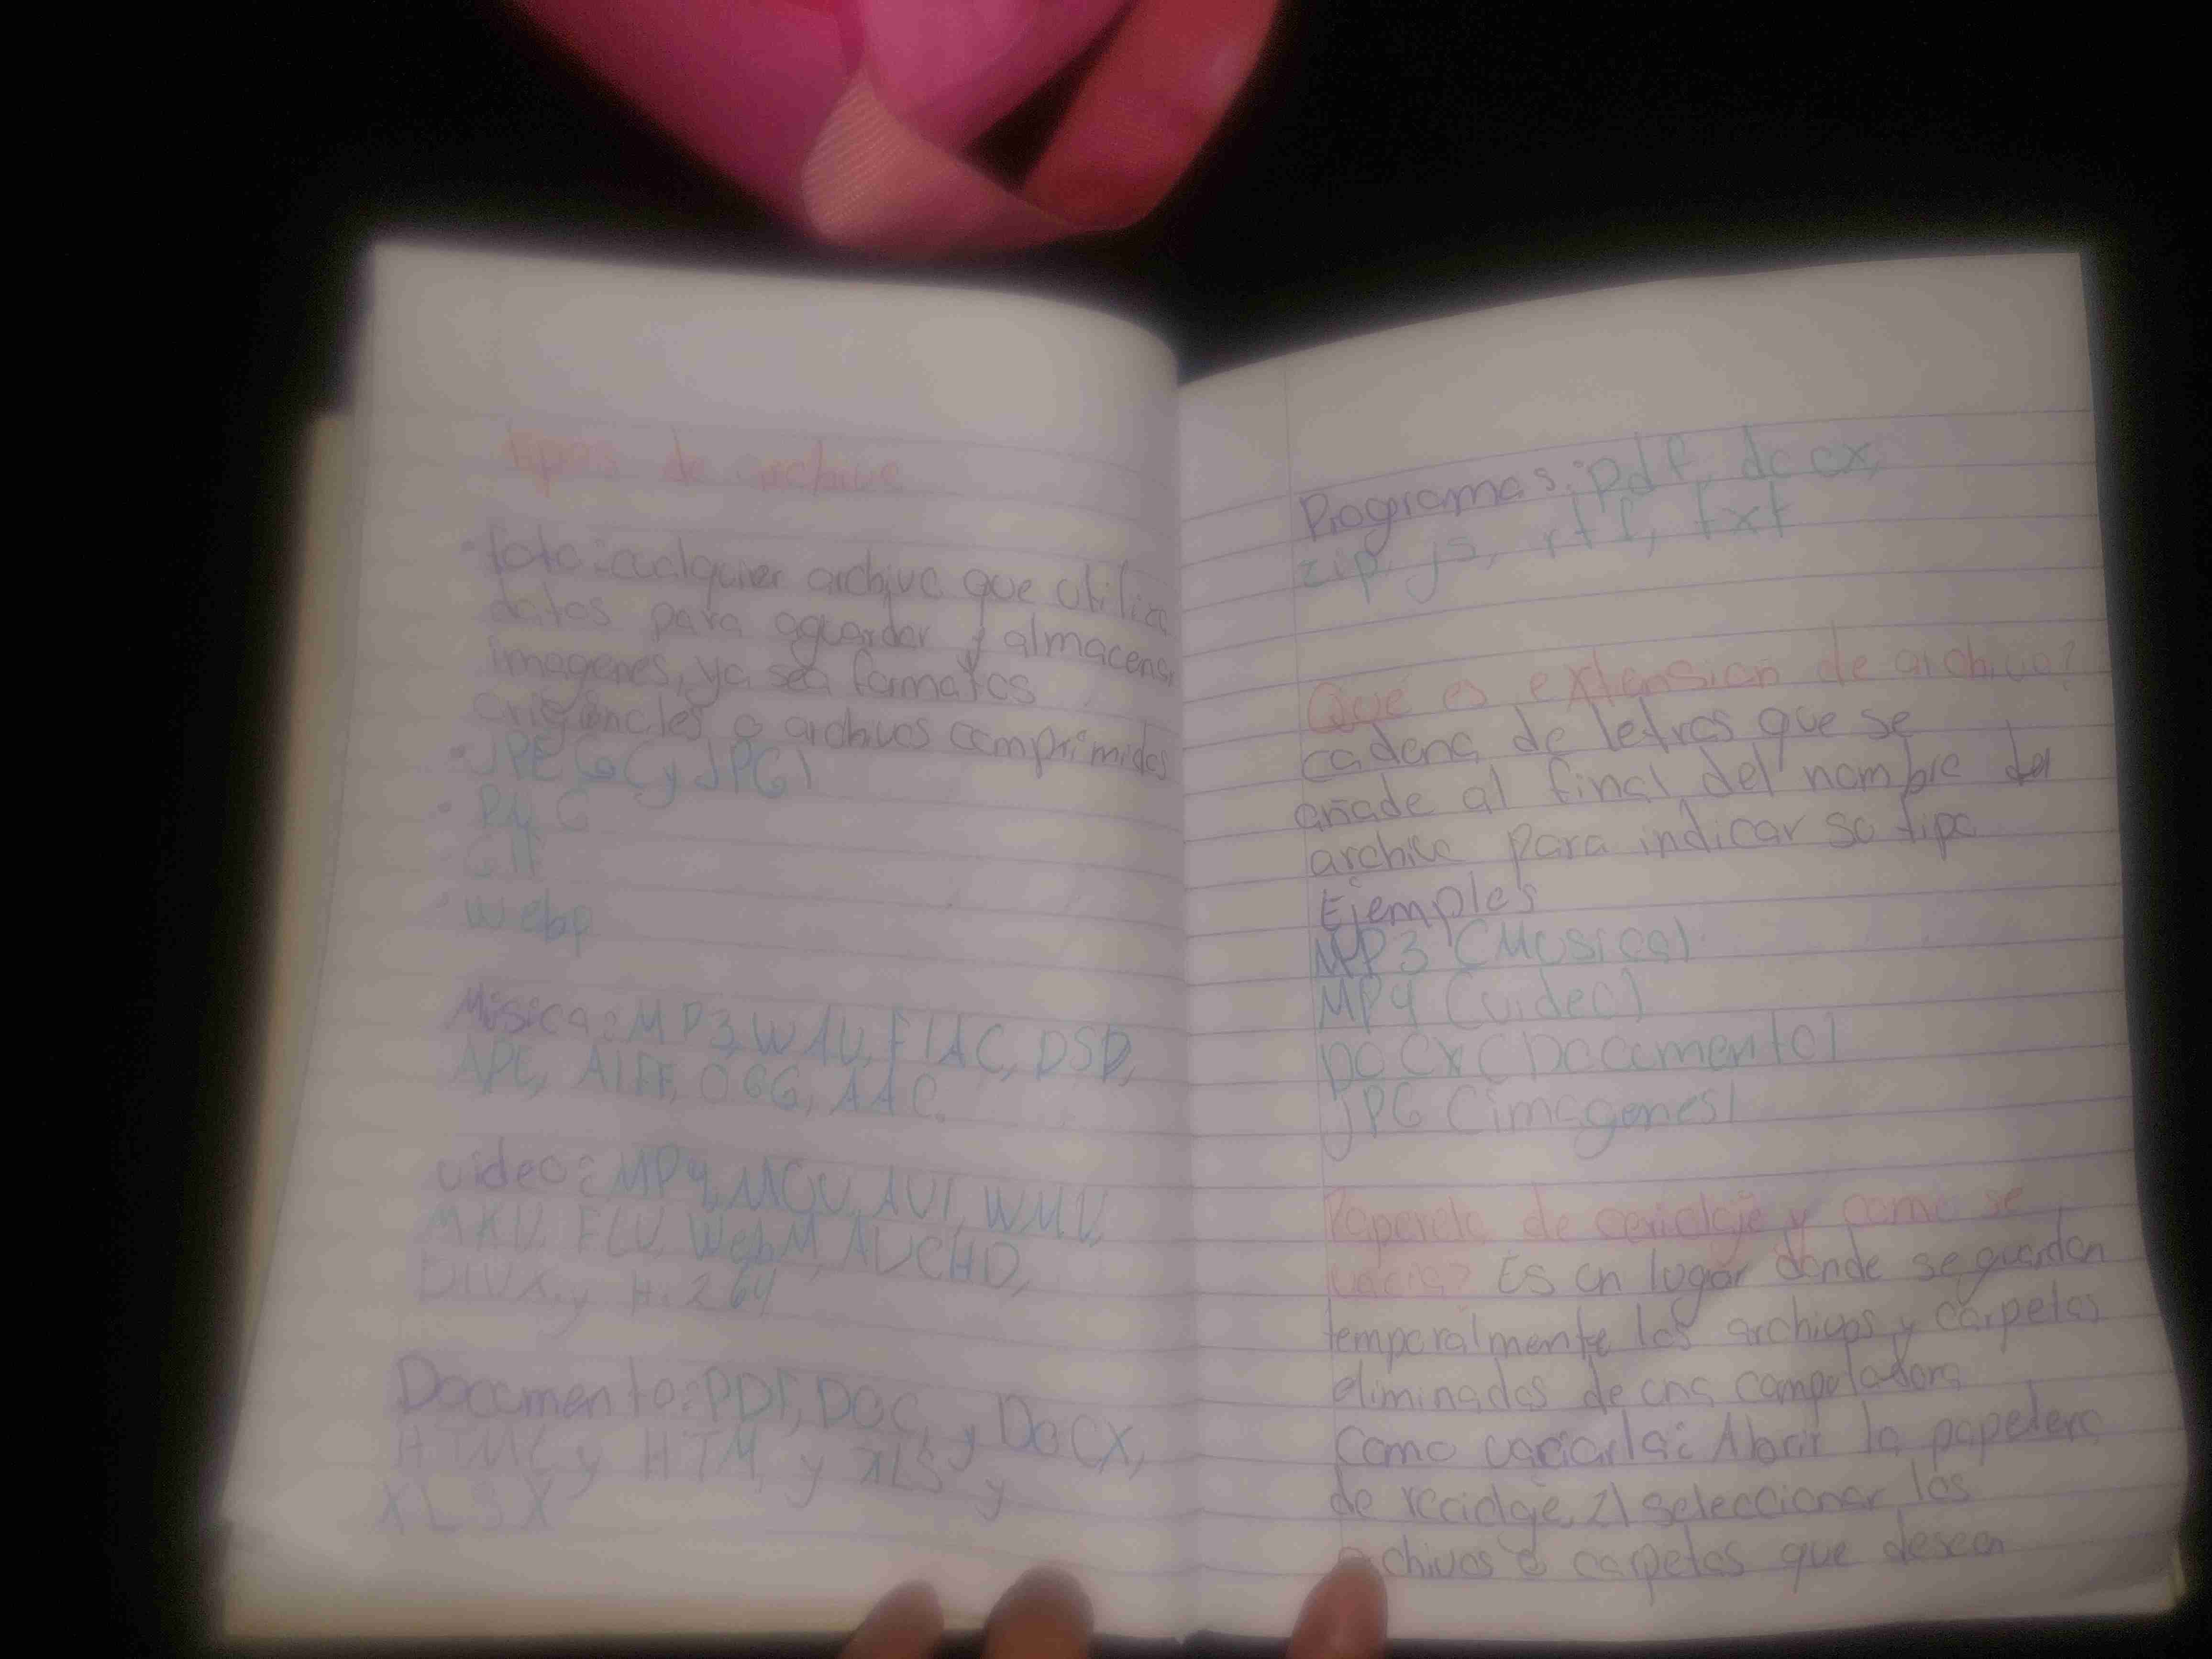 tipos de archivo
• foto: cualquier archivo que utiliza
datos para aguardar y almacenar
imagenes, ya sea formatos
o archivos comprimidos
• JPEG (y JPG)
• PNG
GIF
• webp
Música: MP3, WAV, FLAC, DSD,
APE, AIFF, OGG, AAC.
video: MP4, MOV, AVI, WMV,
MKV, FLV, WebM, AVCHD,
DIVX y H.264
Documento: PDF, DOC y DOCX,
HTML y HTM y XLS y
XLSX
Programas: pdf, docx,
zip, js, rtf, txt
Que es extension de archivo?
cadena de letras que se
añade al final del nombre del
archivo para indicar su tipo
Ejemplos
MP3 (Musica)
MP4 (video)
DOCX (Documento)
JPG (imagenes)
de y como se
Es un lugar donde se guardan
temporalmente los archivos y carpetas
eliminados de una computadora
Como vaciarla: Abrir la papelera
de reciclaje 2) seleccionar los
archivos o carpetas que desea